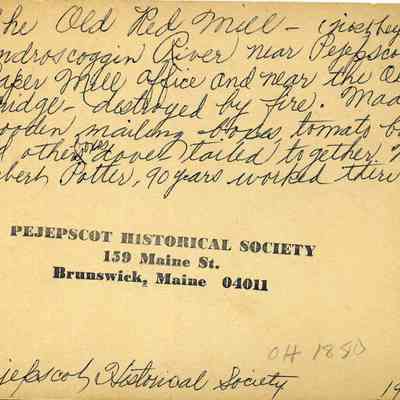 The Old Red Mill - (just
Androscoggin River near Pejepsco
Paper Mill Office and near the Ol
Bridge - destroyed by fire. Mad
wooden mailing boxes, tomato bo
d other boxes dove tailed together.
bert Potter, 90 years worked ther
PEJEPSCOT HISTORICAL SOCIETY
159 Maine St.
Brunswick, Maine 04011
OH 1880
jepscot Historical Society 19